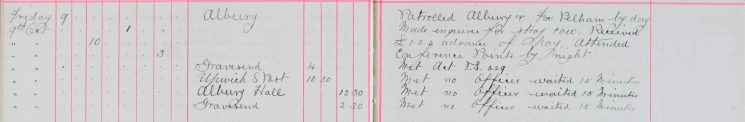 Friday 9 Albury Patrolled Albury & Fur Pelham by day
9th Oct 1 Made enquires for stray cow. Received
" " 10 £10.0 advance of pay. Attended
" " 3 Conference Points by night
" " Gravesend 4 Met Act P.S. 229
" " Upwick S Post 10 30 Met no Officer waited 15 Minutes
" " Albury Hall 12 30 Met no Officer waited 15 Minutes
" " Gravesend 2 30 Met no Officer waited 15 Minutes